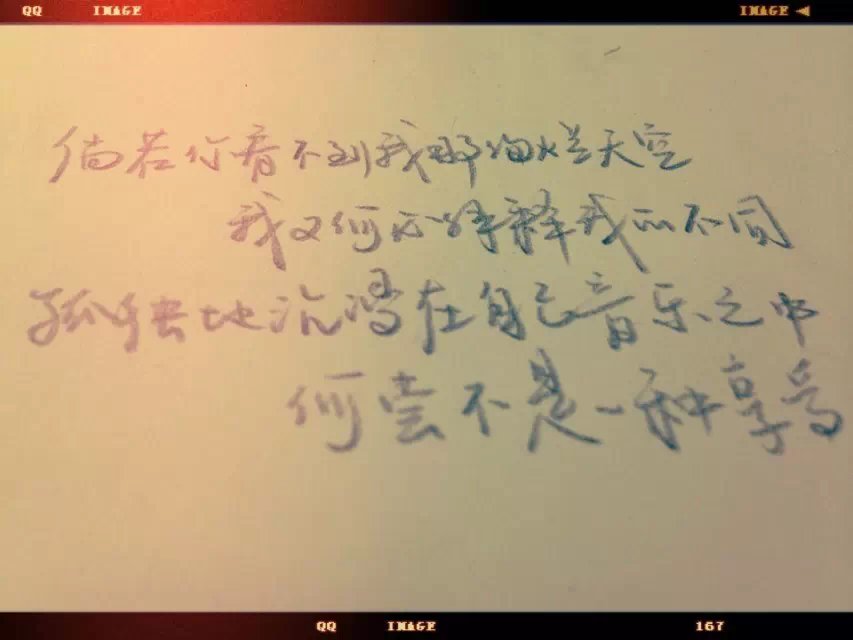 QQ IMAGE IMAGE
倘若你看不到我那绚烂天空
我又何必解释我的不同
孤独地沉溺在自己音乐之中
何尝不是一种享
QQ IMAGE 167